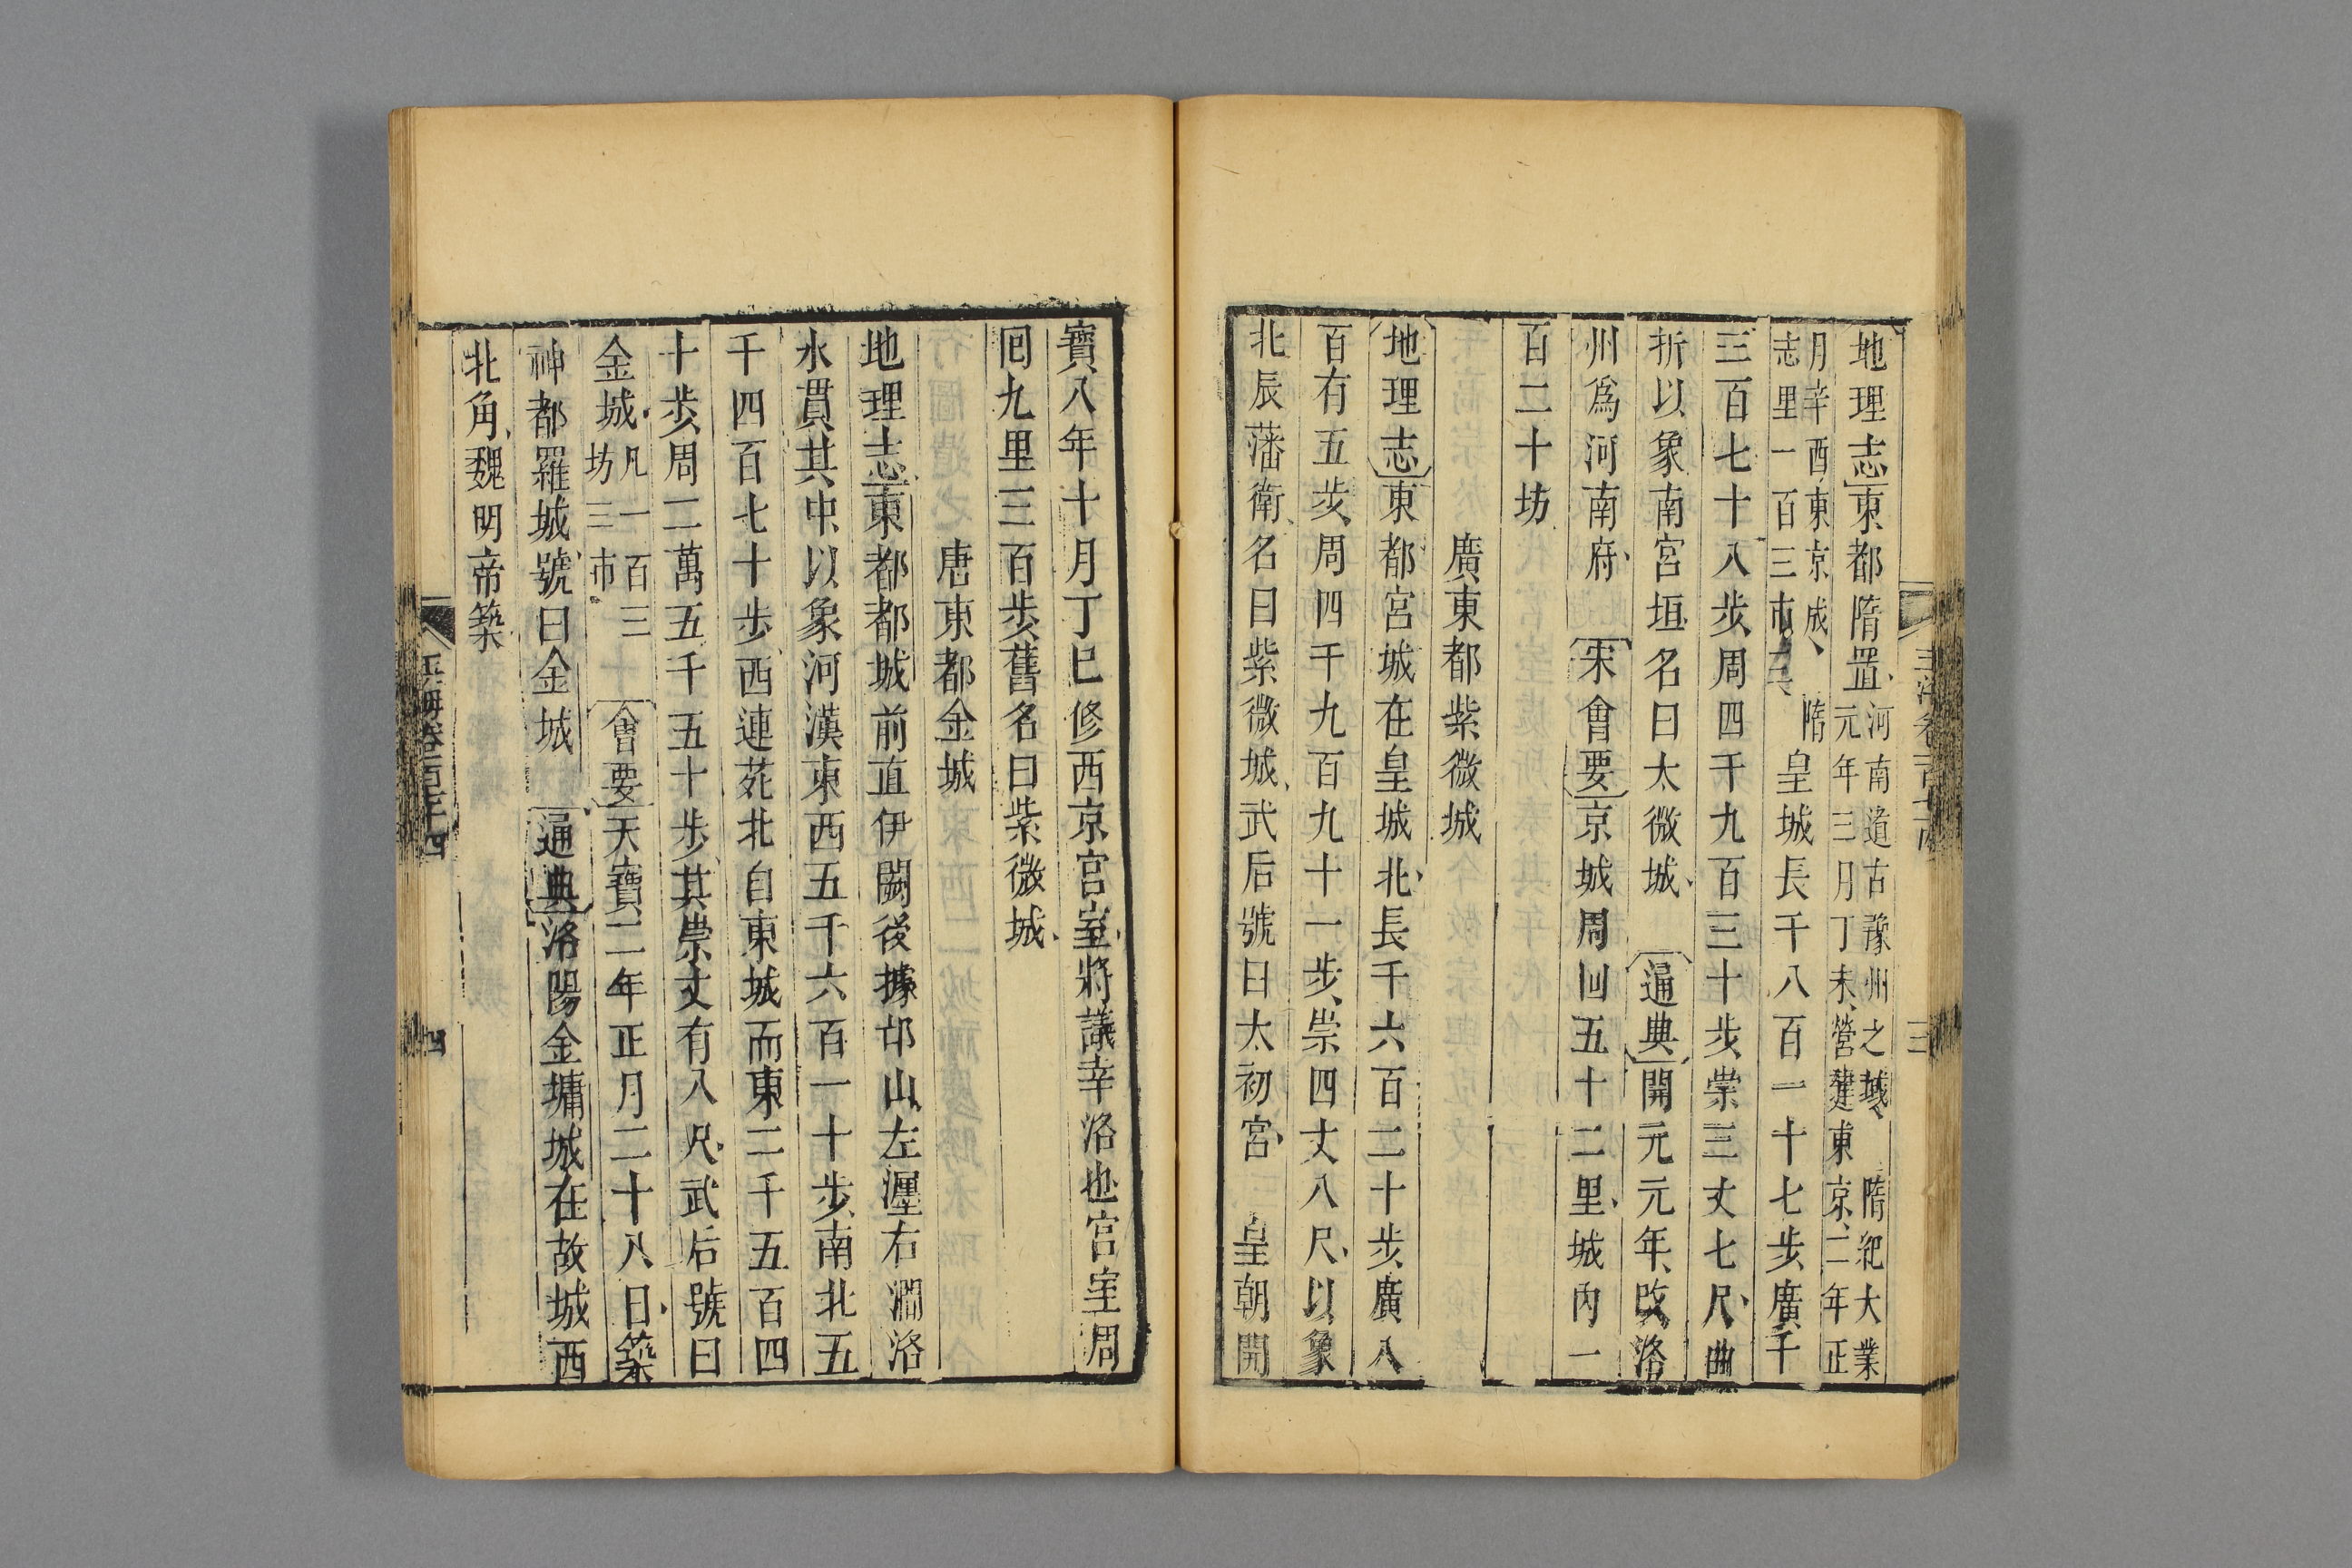 地理志東都隋置河南道古豫州之域隋紀大業
元年三月丁未營建東京二年正
月辛酉東京成隋
志里一百三市三
皇城長千八百一十七步廣千
三百七十八步周四千九百三十步崇三丈七尺曲
折以象南宮垣名曰太微城　通典開元元年改洛
州爲河南府　宋會要京城周回五十二里城內一
百二十坊
廣東都紫微城
地理志東都宮城在皇城北長千六百二十步廣八
百有五步周四千九百九十一步崇四丈八尺以象
北辰藩衛名曰紫微城武后號曰太初宮　皇朝開
寶八年十月丁巳修西京宮室將議幸洛也宮室周
回九里三百步舊名曰紫微城
唐東都金城
地理志東都都城前直伊闕後據邙山左瀍右澗洛
水貫其中以象河漢東西五千六百一十步南北五
千四百七十步西連苑北自東城而東二千五百四
十步周二萬五千五十步其崇丈有八尺武后號曰
金城凡一百三
坊三市
會要天寶二年正月二十八日築
神都羅城號曰金城　通典洛陽金墉城在故城西
北角魏明帝築
玉海卷一百七十四
四
三